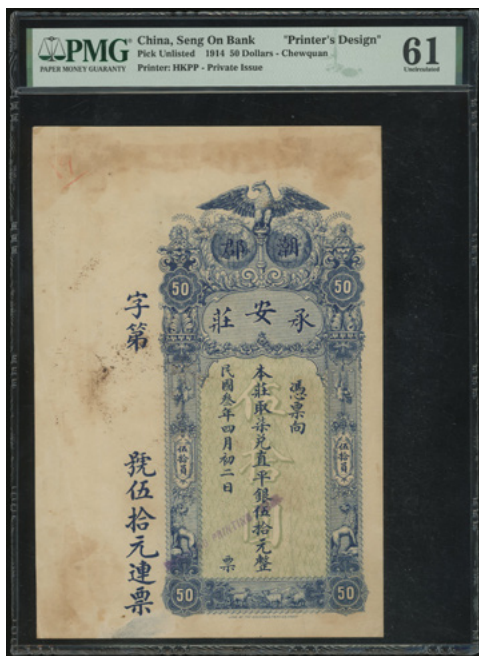 PMG
PAPER MONEY GUARANTY
China, Seng On Bank "Printer's Design"
Pick Unlisted 1914 50 Dollars - Chewquan
Printer: HKPP - Private Issue
61
Uncirculated
潮郡
50
50
承安莊
憑票向
本莊取茶兌直平銀伍拾元整
民國叁年四月初二日
票
伍拾員
伍拾員
伍拾圓
字第
號伍拾元連票
PRINTING
50
50